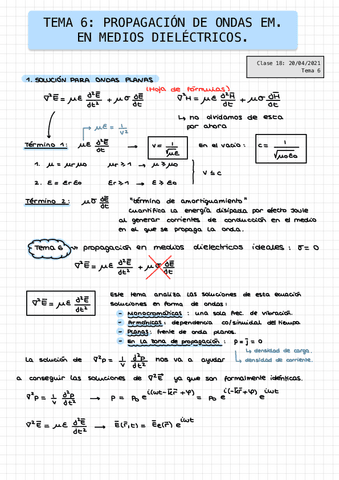 TEMA 6: PROPAGACIÓN DE ONDAS EM.
EN MEDIOS DIELÉCTRICOS.
Clase 18: 20/04/2021
Tema 6
1. SOLUCIÓN PARA ONDAS PLANAS
(Hoja de fórmulas)
∇²E⃗ = με d²E⃗/dt² + μσ dE⃗/dt
∇²H⃗ = με d²H⃗/dt² + μσ dH⃗/dt
↳ no olvidamos de esta
por ahora
→ με = 1/v²
Término 1: με d²E⃗/dt² → v = 1/√με En el vacío: c = 1/√μ₀ε₀
1. μ = μr μ₀ μr ≥ 1 → μ ≥ μ₀
2. ε = εr ε₀ εr ≥ 1 → ε ≥ ε₀
v ≤ c
Término 2: μσ dE⃗/dt "término de amortiguamiento"
Cuantifica la energía disipada por efecto Joule
al generar corrientes de conducción en el medio
en el que se propaga la onda.
Tema 6 → propagación en medios dieléctricos ideales: σ = 0
∇²E⃗ = με d²E⃗/dt² + μσ dE⃗/dt
∇²E⃗ = με d²E⃗/dt²
Este tema analiza las soluciones de esta ecuación
soluciones en forma de ondas:
- Monocromáticas: una sola frec. de vibración.
- Armónicas: dependencia co/sinusoidal del tiempo
- Planas: frente de onda plano.
- En la zona de propagación: ρ = j = 0
↳ densidad de carga.
↳ densidad de corriente.
La solución de ∇²p = 1/v d²p/dt² nos va a ayudar
a conseguir las soluciones de ∇²E⃗ ya que son formalmente idénticas.
∇²p = 1/v d²p/dt² → p = p₀ e^i(ωt-k⃗r⃗+φ) = p₀ e^i(-k⃗r⃗+φ) e^iωt
∇²E⃗ = με d²E⃗/dt² → E⃗(r⃗,t) = E⃗e(r⃗) e^iωt